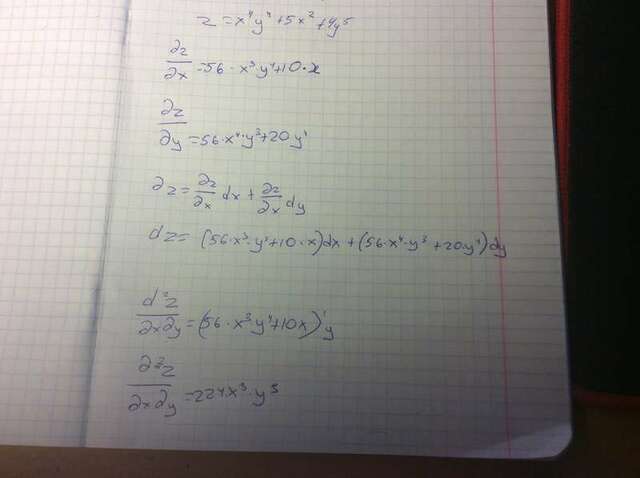 z=x⁴y⁴+5x²+4y⁵
∂z/∂x=56·x³·y⁴+10·x
∂z/∂y=56·x⁴·y³+20y⁴
∂z=∂z/∂x dx+∂z/∂x dy
dz=(56·x³·y⁴+10·x)dx+(56·x⁴·y³+20y⁴)dy
d²z/∂x∂y=(56·x³y⁴+10x)'y
∂²z/∂x∂y=224x³·y³